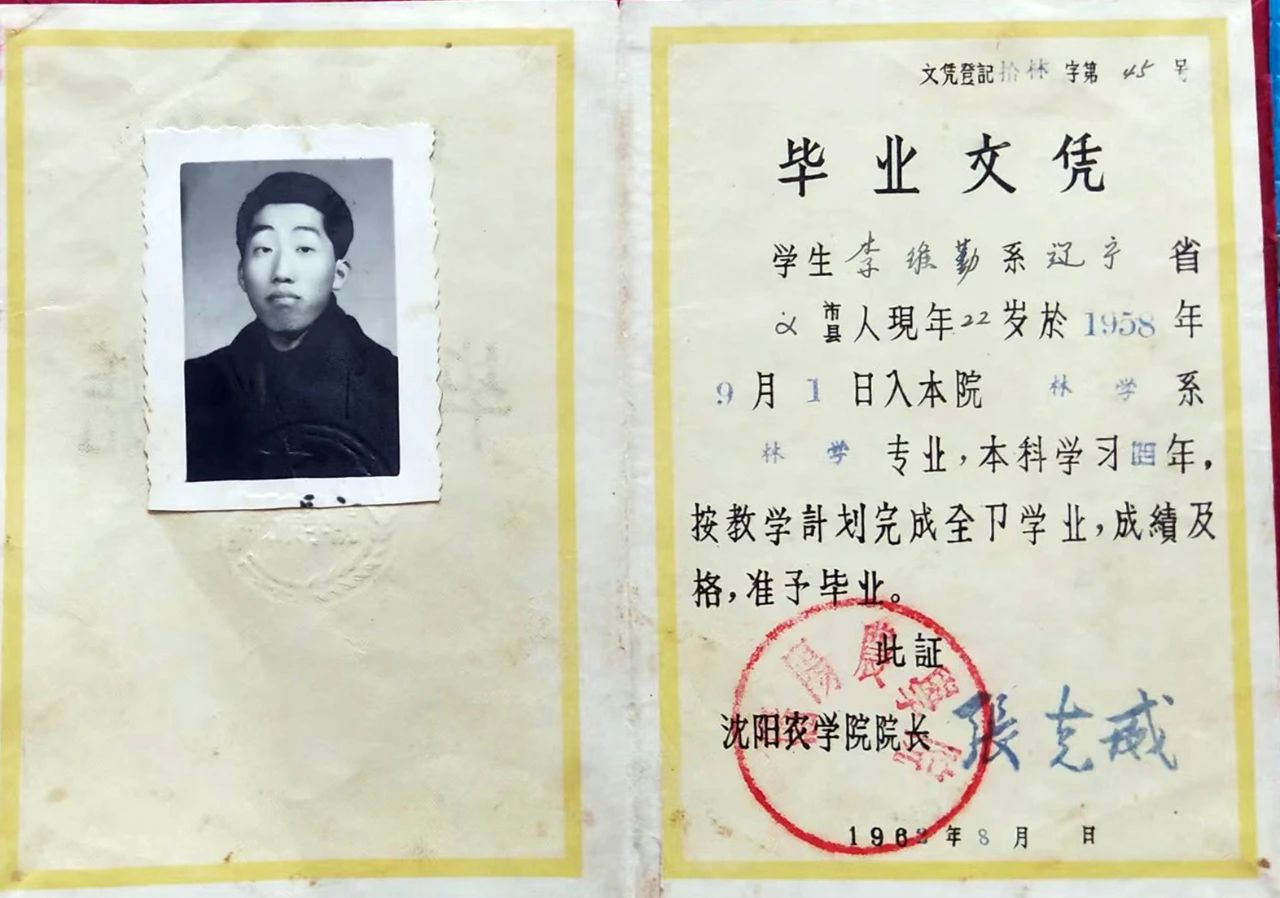 文凭登記拾林字第 45 号
毕业文凭
学生李维勤系辽宁省
义市县人現年22岁於1958年
9月1日入本院林学系
林学专业,本科学习四年,
按教学計划完成全卩学业,成績及
格,准予毕业。
此証
沈阳农学院院长 張克威
1962年8月 日